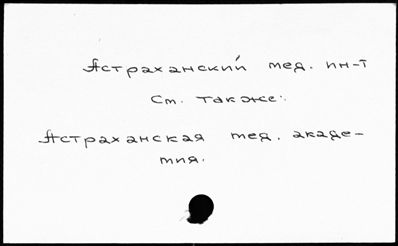 Астраханский мед. ин-т
См. также:
Астраханская мед. акаде-
мия.